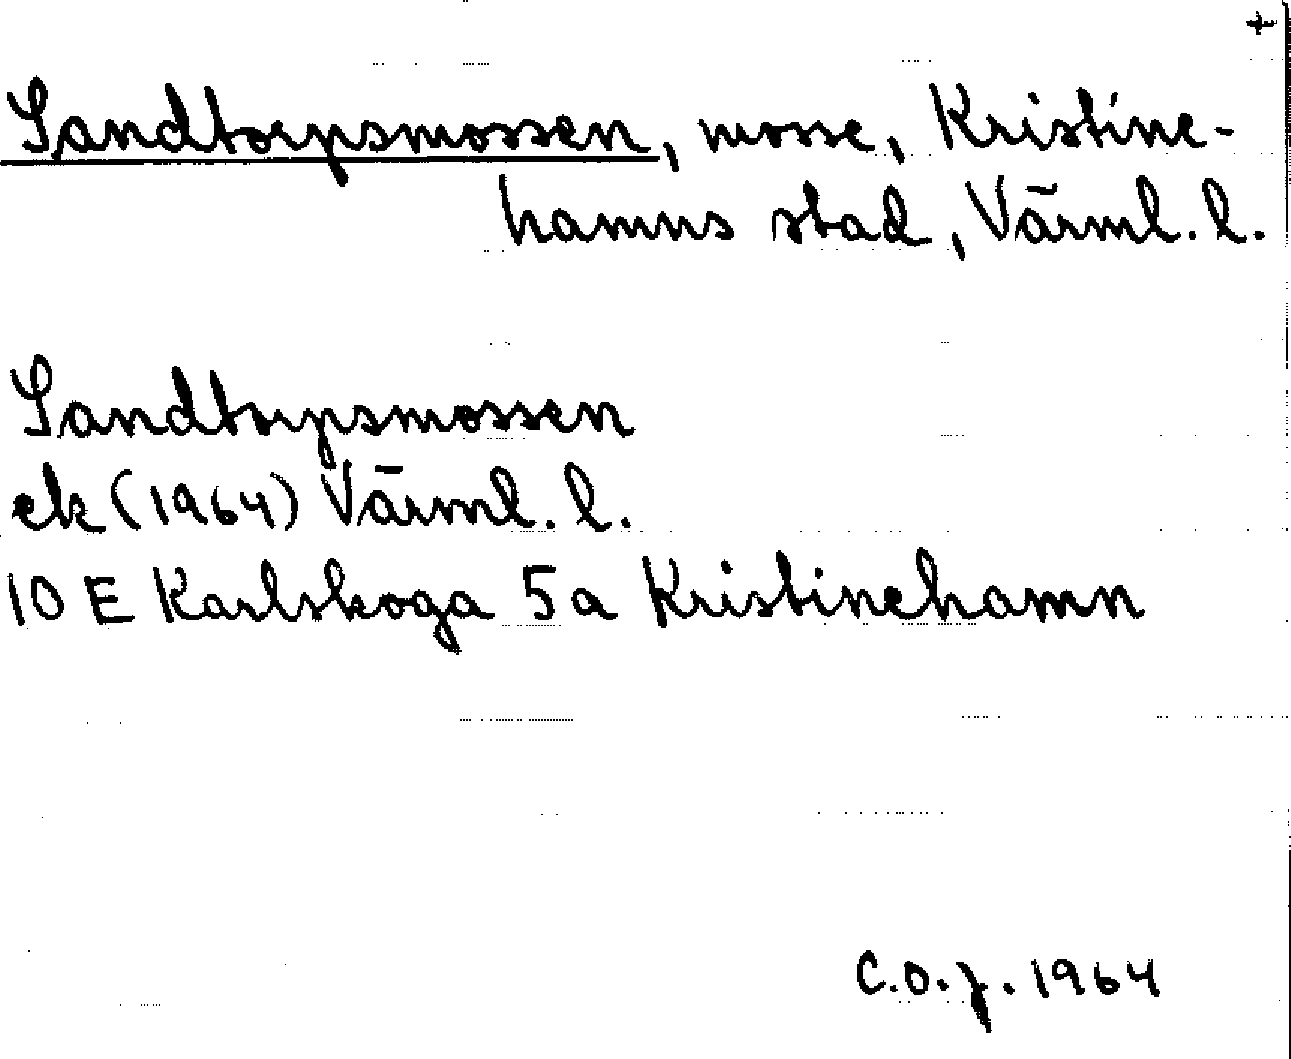 +
Sandtorpsmossen, mosse, Kristine-
hamns stad, Värml. l.
Sandtorpsmossen
ek (1964) Värml. l.
10 E Karlskoga 5a Kristinehamn
C.O.J. 1964